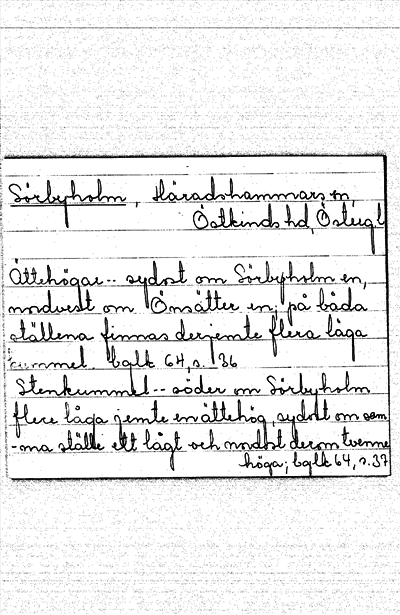 Sörbyholm, Häradshammars sn,
Östkinds hd, Östergl
Ättehögar -- sydost om Sörbyholm en,
nordvest om Önsätter en; på båda
ställena finnas derjemte flera låga
kummel. bglk 64, s. 36
Stenkummel -- söder om Sörbyholm
flere låga jemte en ättehög, sydost om sam-
-ma ställe ett lågt och nordost derom tvenne
höga; bglk 64, s. 37